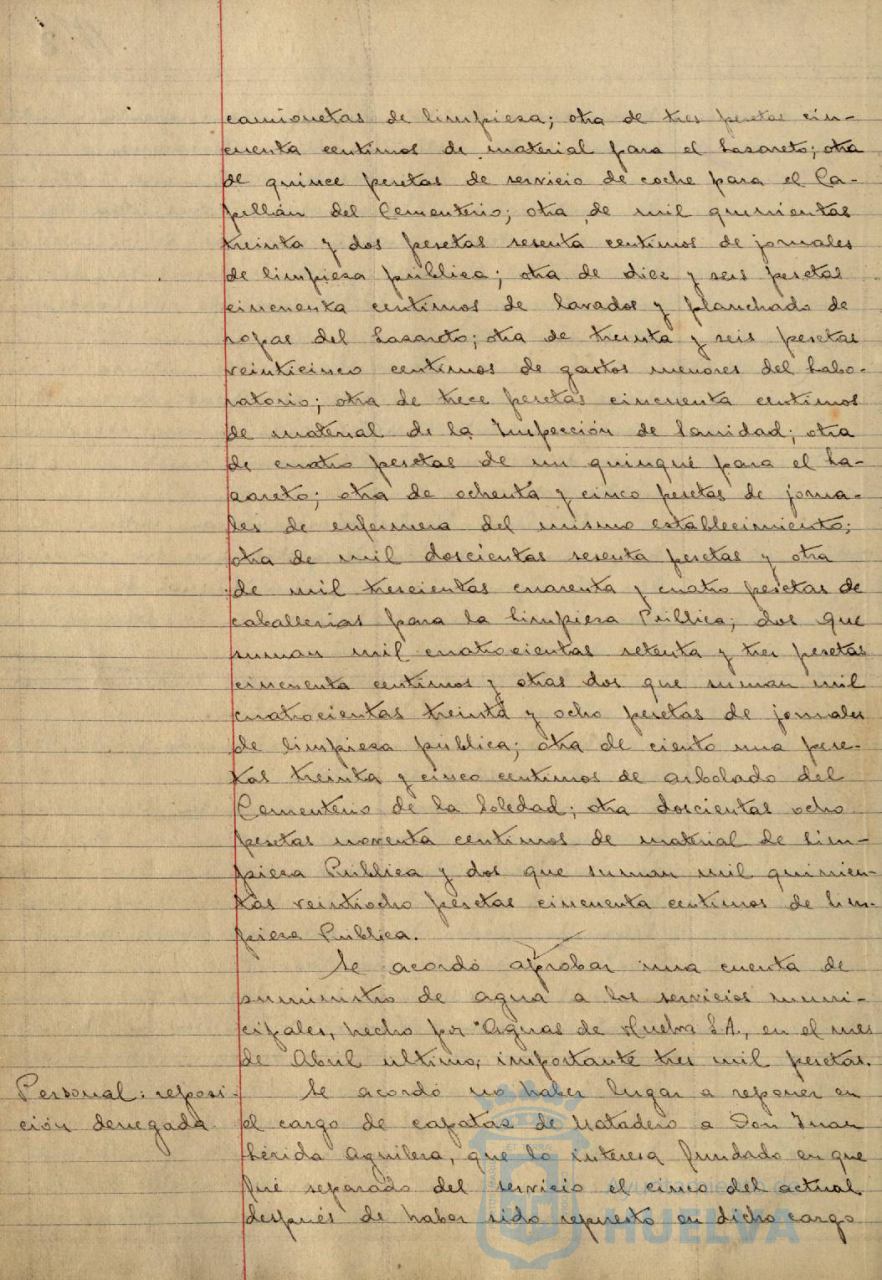 camionetas de limpiesa; otra de tres pesetas cin-
cuenta centimos de material para el Lasareto; otra
de quince pesetas de servicio de coche para el Ca-
pellán del Cementerio; otra de mil quinientas
treinta y dos pesetas sesenta centimos de jornales
de limpiesa pública; otra de diez y seis pesetas
cincuenta centimos de lavados y planchado de
ropas del Lasareto; otra de treinta y seis pesetas
veinticinco centimos de gastos menores del Labo-
ratorio; otra de trece pesetas cincuenta centimos
de material de la Inspección de Sanidad; otra
de cuatro pesetas de un quinqué para el La-
zareto; otra de ochenta y cinco pesetas de jorna-
les de enfermera del mismo establecimiento;
otra de mil doscientas sesenta pesetas y otra
de mil trescientas cuarenta y cuatro pesetas de
caballerias para la limpiesa Pública; dos que
suman mil cuatrocientas setenta y tres pesetas
cincuenta centimos y otras dos que suman mil
cuatrocientas treinta y ocho pesetas de jornales
de limpiesa publica; otra de ciento una pese-
tas treinta y cinco centimos de arbolado del
Cementerio de la Soledad; otra doscientas ocho
pesetas noventa centimos de material de Lim-
piesa Pública y dos que suman mil quinien-
tas veintiocho pesetas cincuenta centimos de lim-
piesa Publica.
Se acordó aprobar una cuenta de
suministro de agua a los servicios muni-
cipales, hecho por "Aguas de Huelva S.A., en el mes
de Abril ultimo, importante tres mil pesetas.
Personal: reposi-
ción denegada
Se acordó no haber lugar a reponer en
el cargo de capatas de Matadero a Don Juan
Lérida Aguilera, que lo interesa fundado en que
fué separado del servicio el cinco del actual
después de haber sido repuesto en dicho cargo
HUELVA